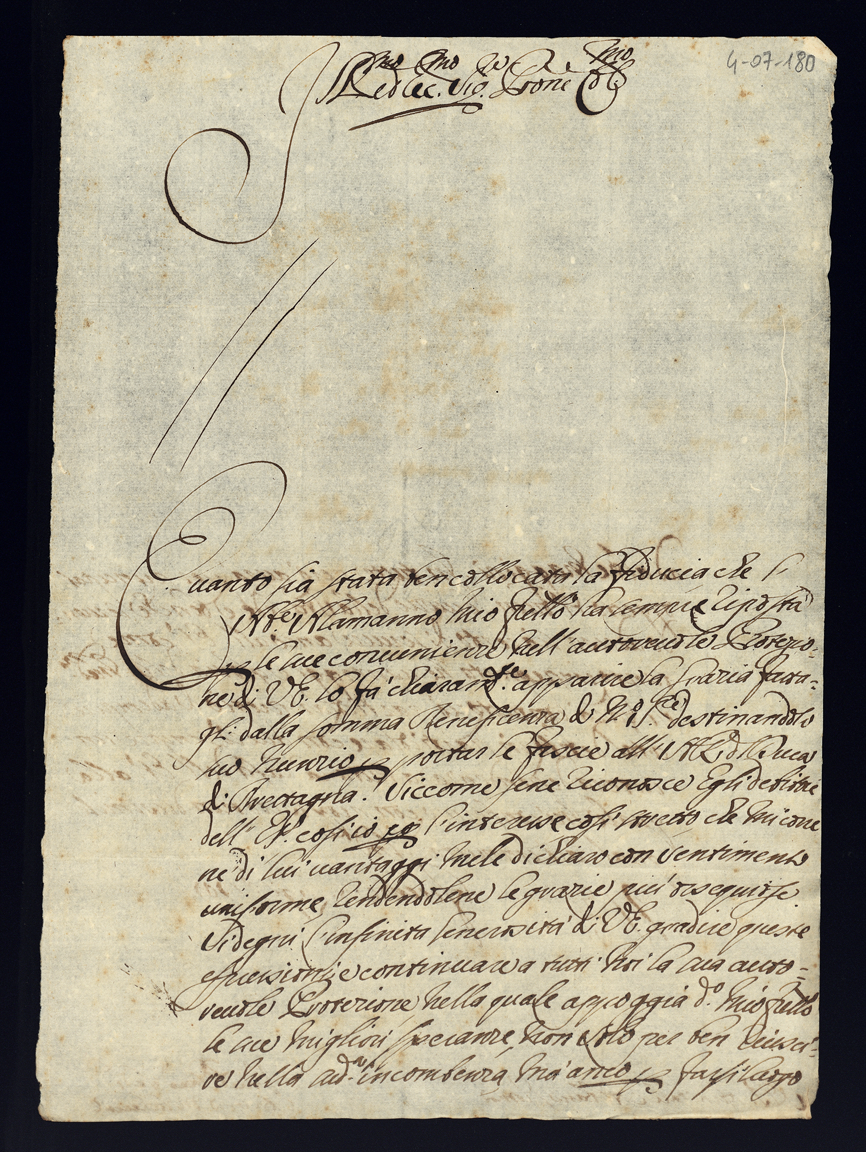 4-07-180
Ill.mo Ed Ecc.mo Sig.r Prone Col.mo
Quanto sia stata ben collocata la fiducia che l'
Ab.e Alamanno mio frello ha sempre riposta
le sue convenienze nell'autorevole Protezio-
ne di V.E. lo fà chiaram.te apparire la grazia fatta-
gli dalla somma Beneficenza di N.o S.re destinandolo
suo Nunzio p portar le fascie all'Duca
di Brettagna. Siccome sene riconosce Egli debitore
dell'E.V. così io p l'interesse così stretto che mi corre
ne di lui vantaggi mele dichiaro con sentimento
uniforme rendendolene le grazie più ossequiose.
Si degni l'infinita generosità di V.E. gradire queste
espressioni, e continuare a tutti noi la sua auto-
revole Protezione nella quale appoggia d.o mio frello
le sue migliori speranze, non solo per ben riusci-
re nella ad.a incombenza, mà anco p farsi largo